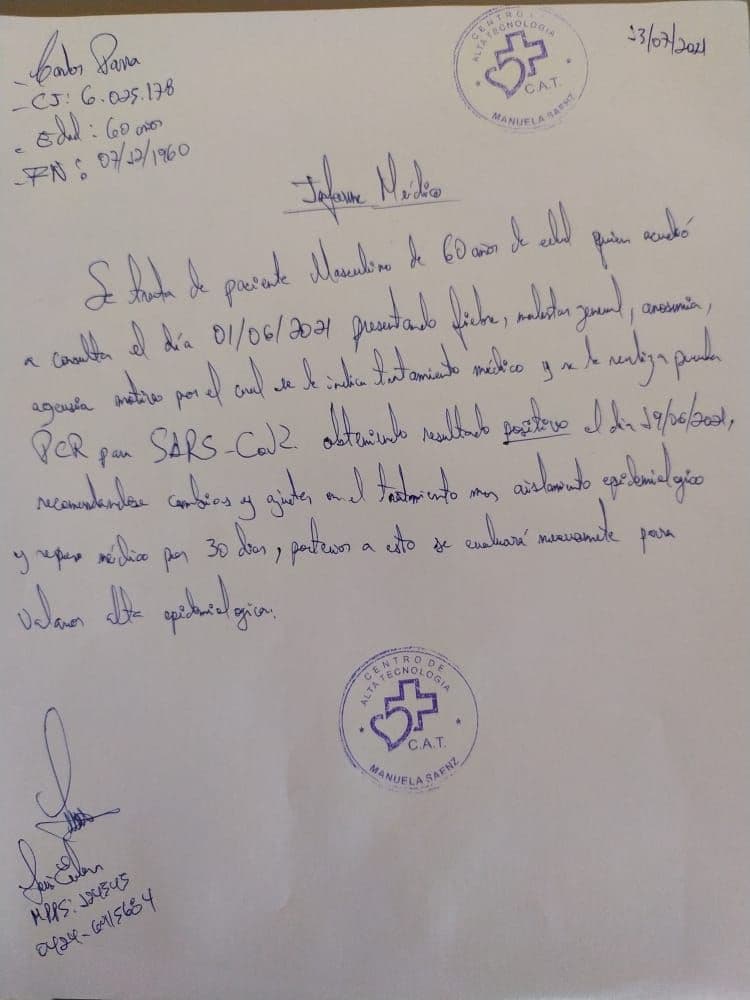 CENTRO DE
ALTA TECNOLOGIA
C.A.T.
MANUELA SAENZ
13/07/2021
- Carlos Parra
- CI: 6.025.178
- Edad: 60 años
- FN: 07/12/1960
Informe Médico
Se trata de paciente Masculino de 60 años de edad quien acudió
a consulta el día 01/06/2021 presentando fiebre, malestar general, anosmia,
ageusia motivo por el cual se le indica tratamiento médico y se le realiza prueba
PCR para SARS-CoV2 obteniendo resultado positivo el día 19/06/2021,
recomendandose cambios y ajustes en el tratamiento mas aislamiento epidemiologico
y reposo médico por 30 dias, posterior a esto se evaluará nuevamente para
valorar alta epidemiologica.
CENTRO DE
ALTA TECNOLOGIA
C.A.T.
MANUELA SAENZ
MPPS:
0424-